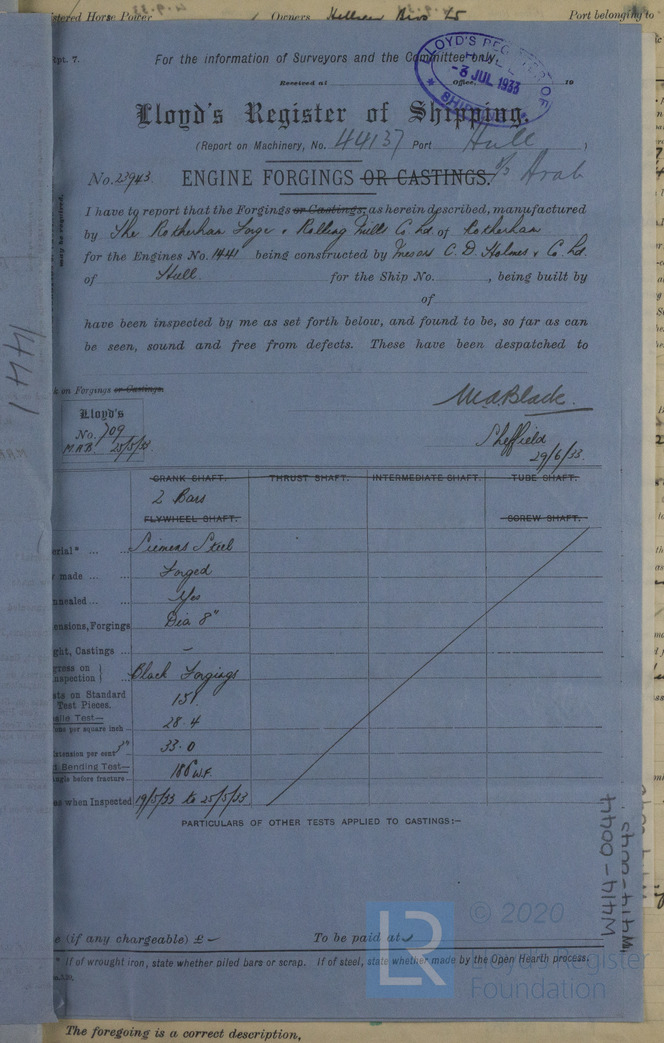 Owners Hellyer Bros Ld Port belonging to
Rpt. 7.
For the information of Surveyors and the Committee only.
Received at Office, 19
LLOYD'S REGISTER OF SHIPPING
-3 JUL 1933
Lloyd's Register of Shipping.
(Report on Machinery, No. 44137 Port Hull )
No. 23943. ENGINE FORGINGS OR CASTINGS. S/S Arab
I have to report that the Forgings or Castings, as herein described, manufactured
by The Rotherham Forge & Rolling Mills Co Ld. of Rotherham
for the Engines No. 1441 being constructed by Messrs C. D. Holmes & Co. Ld.
of Hull for the Ship No. , being built by
of
have been inspected by me as set forth below, and found to be, so far as can
be seen, sound and free from defects. These have been despatched to
may be required.
1441
on Forgings or Castings.
M A Black.
Lloyd's
No. 709
M.A.B. 25/5/33
Sheffield
29/6/33.
CRANK SHAFT. THRUST SHAFT. INTERMEDIATE SHAFT. TUBE SHAFT.
2 Bars
FLYWHEEL SHAFT. SCREW SHAFT.
erial* ... Siemens Steel
made ... Forged
nnealed ... Yes
ensions, Forgings Dia 8"
ght, Castings ... -
gress on
nspection } Black Forgings
sts on Standard
Test Pieces. 151
sile Test—
ons per square inch 28.4
xtension per cent 3" 33.0
Bending Test—
ngle before fracture 180 W.F.
es when Inspected 19/5/33 to 25/5/33
PARTICULARS OF OTHER TESTS APPLIED TO CASTINGS:—
W414-0044
W414-0045
e (if any chargeable) £ — To be paid at
* If of wrought iron, state whether piled bars or scrap. If of steel, state whether made by the Open Hearth process.
© 2020
LR
Lloyd's Register
Foundation
The foregoing is a correct description,